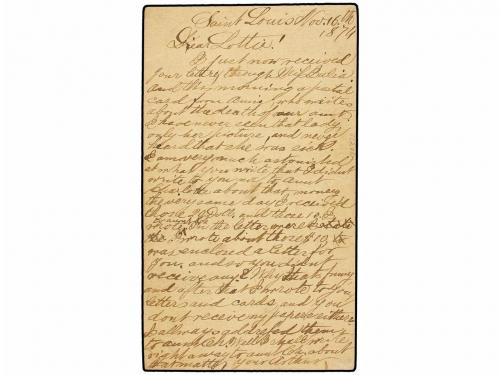 Saint Louis Nov. 16th
1874
Dear Lottie!
I just now received
your letter, though Miss Julia.
And this morning a postal
card from Annie, who writes
about the death of our aunt,
I have never seen that lady
only her picture, and never
heard that she was sick.
I am very much astonished
at what you write that I didn't
write to you nor to aunt
Charlotte about that money
the very same day I received
those 20 Doll. and those 10 I
wrote. In the letter were
I wrote about those $10,
was enclosed a letter for
you, and so you didn't
receive any? Why that's funny
and after that I wrote to you
letters and cards, and you
don't receive my papers either.
I allways addressed them
to aunt Ch. Well I shall write
right away to aunt Ch. about
that matter. Your Arthur